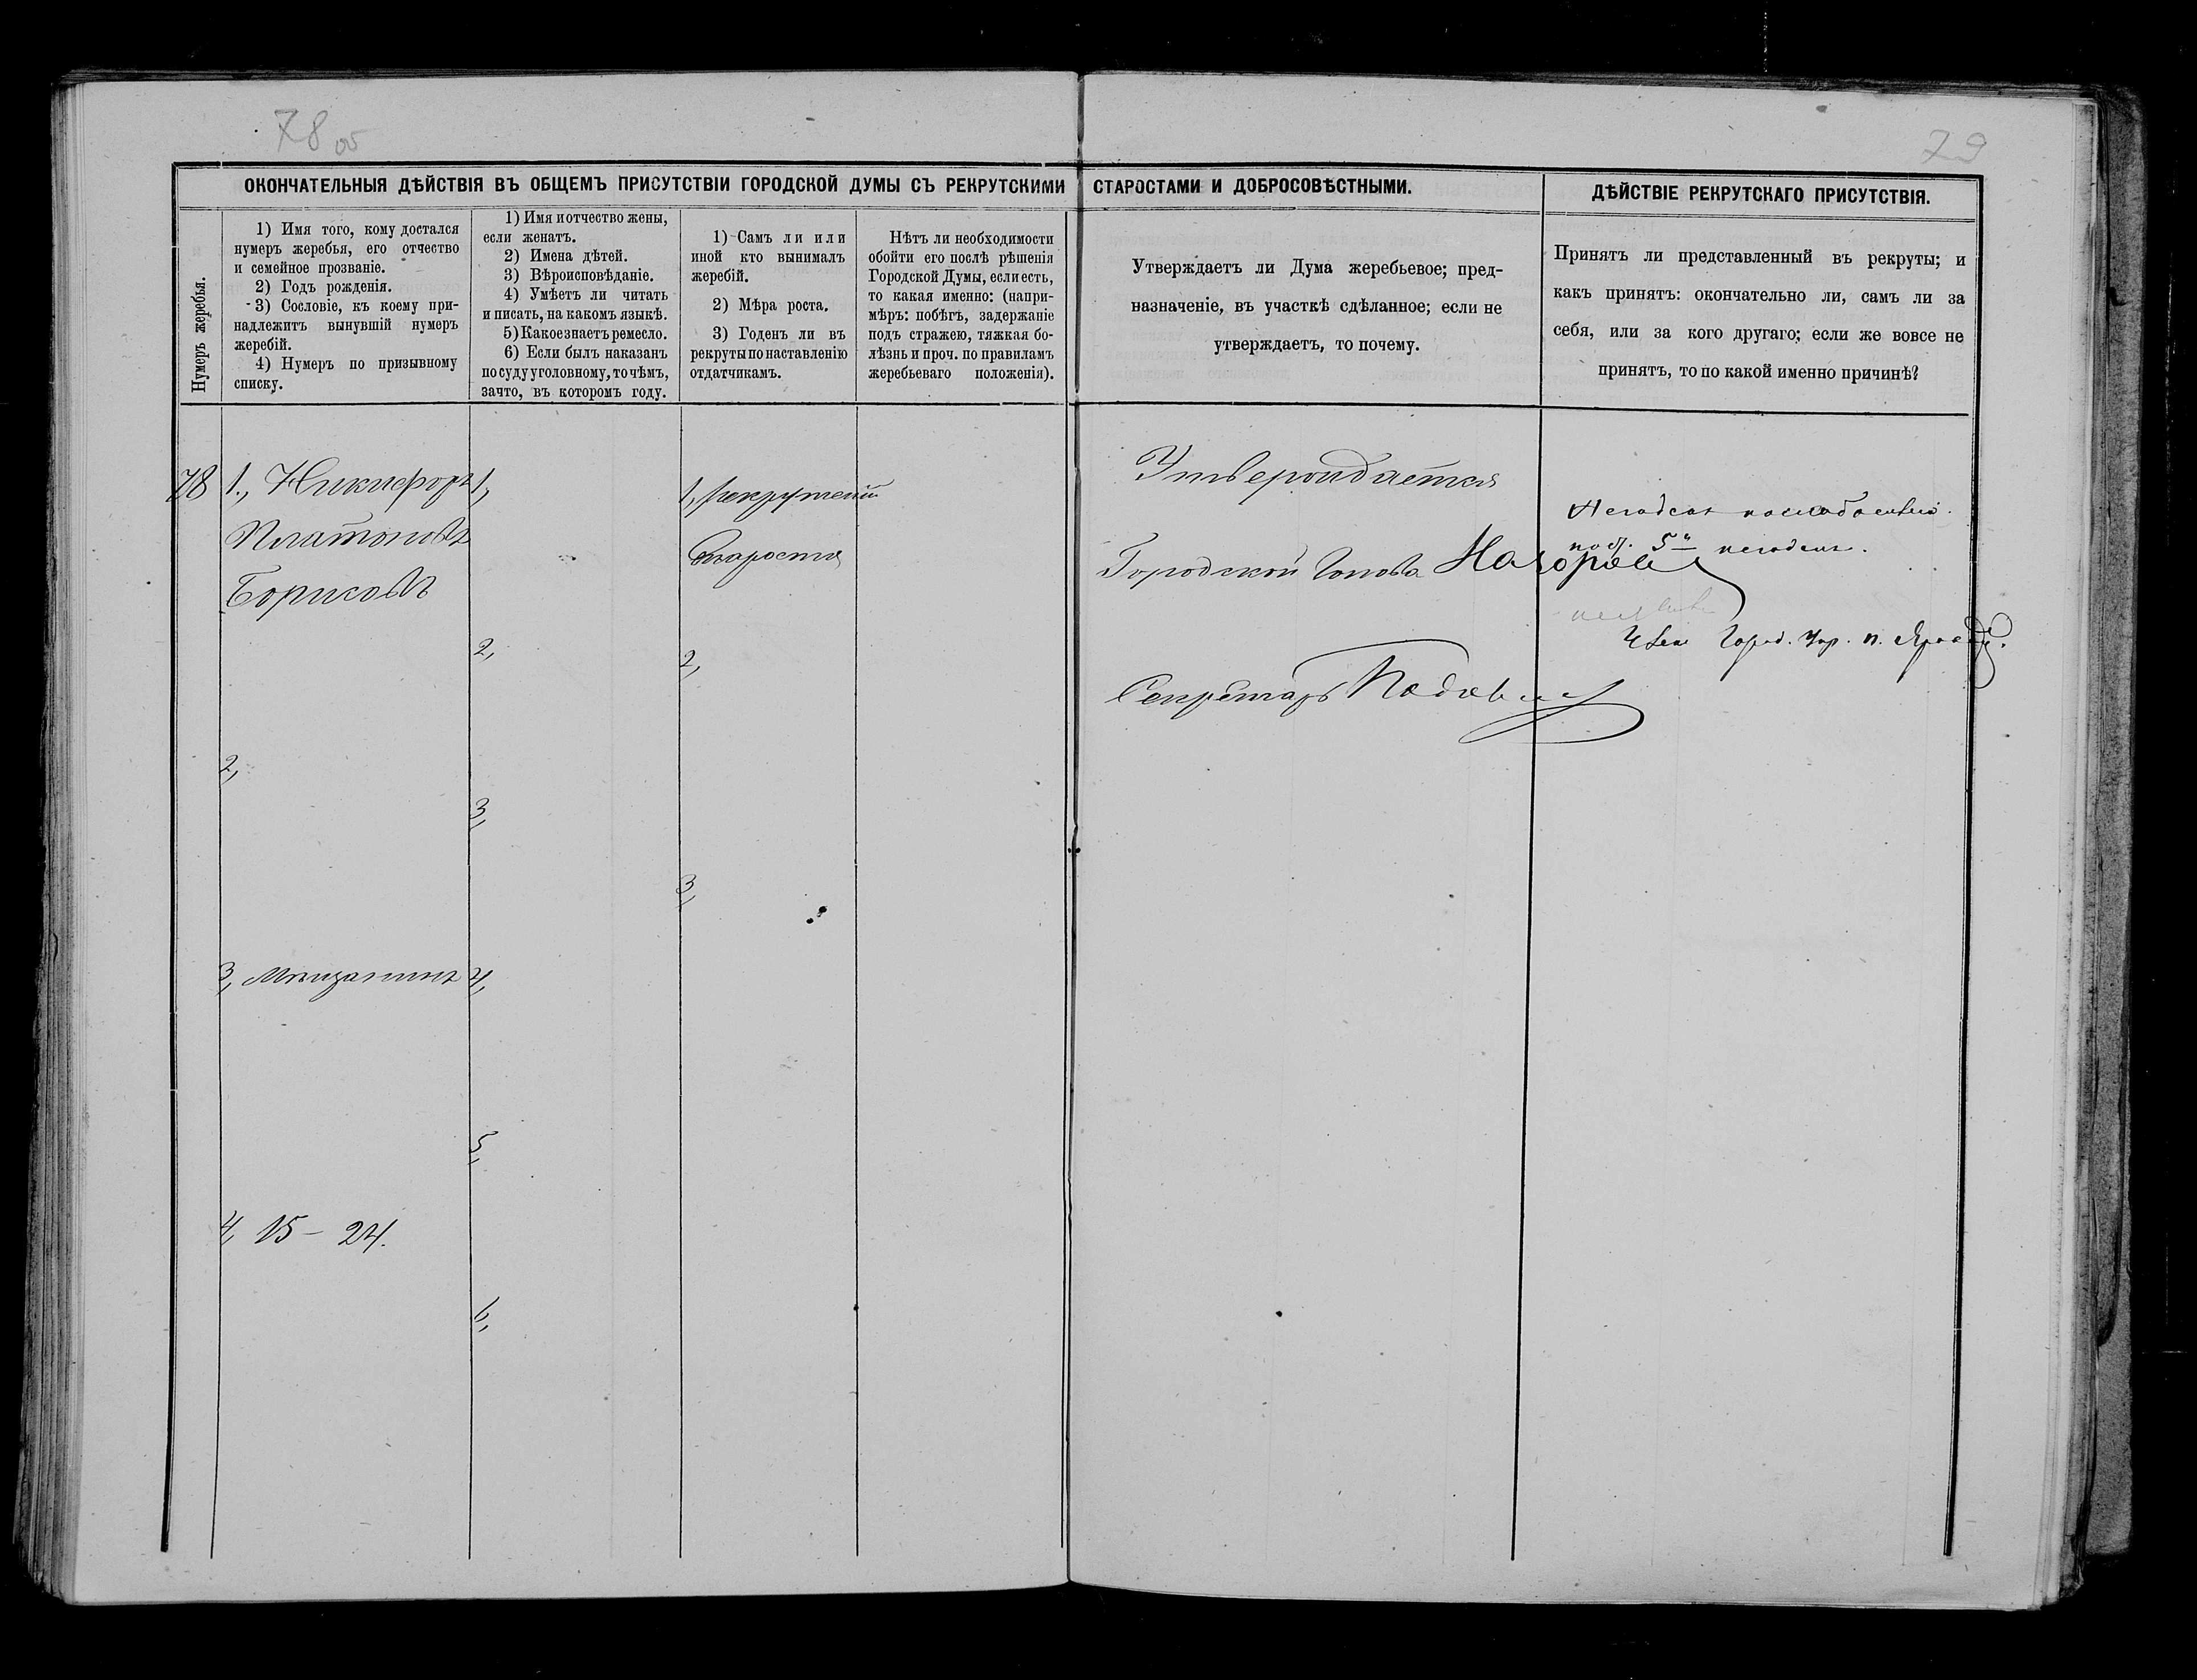 78 об
79
ОКОНЧАТЕЛЬНЫЯ ДѢЙСТВІЯ ВЪ ОБЩЕМЪ ПРИСУТСТВІИ ГОРОДСКОЙ ДУМЫ СЪ РЕКРУТСКИМИ СТАРОСТАМИ И ДОБРОСОВѢСТНЫМИ.
ДѢЙСТВІЕ РЕКРУТСКАГО ПРИСУТСТВІЯ.
Нумеръ жеребья.
1) Имя того, кому достался
нумеръ жеребья, его отчество
и семейное прозваніе.
2) Годъ рожденія.
3) Сословіе, къ коему при-
надлежитъ вынувшій нумеръ
жеребій.
4) Нумеръ по призывному
списку.
1) Имя и отчество жены,
если женатъ.
2) Имена дѣтей.
3) Вѣроисповѣданіе.
4) Умѣетъ ли читать
и писать, на какомъ языкѣ.
5) Какое знаетъ ремесло.
6) Если былъ наказанъ
по суду уголовному, то чѣмъ,
за что, въ которомъ году.
1) Самъ ли или
иной кто вынималъ
жеребій.
2) Мѣра роста.
3) Годенъ ли въ
рекруты по наставленію
отдатчикамъ.
Нѣтъ ли необходимости
обойти его послѣ рѣшенія
Городской Думы, если есть,
то какая именно: (напри-
мѣръ: побѣгъ, задержаніе
подъ стражею, тяжкая бо-
лѣзнь и проч. по правиламъ
жеребьеваго положенія).
Утверждаетъ ли Дума жеребьевое; пред-
назначеніе, въ участкѣ сдѣланное; если не
утверждаетъ, то почему.
Принятъ ли представленный въ рекруты; и
какъ принятъ: окончательно ли, самъ ли за
себя, или за кого другаго; если же вовсе не
принятъ, то по какой именно причинѣ?
78
1., Никифоръ
Платоновъ
Борисовъ
2,
3, Мѣщанинъ
4, 15 – 24.
1,
2,
3,
4,
5,
6,
1, рекрутскій
староста
2,
3,
Утверждается
Городской Голова
Секретарь
Негоденъ
5 негоденъ.
Член Город. Упр.